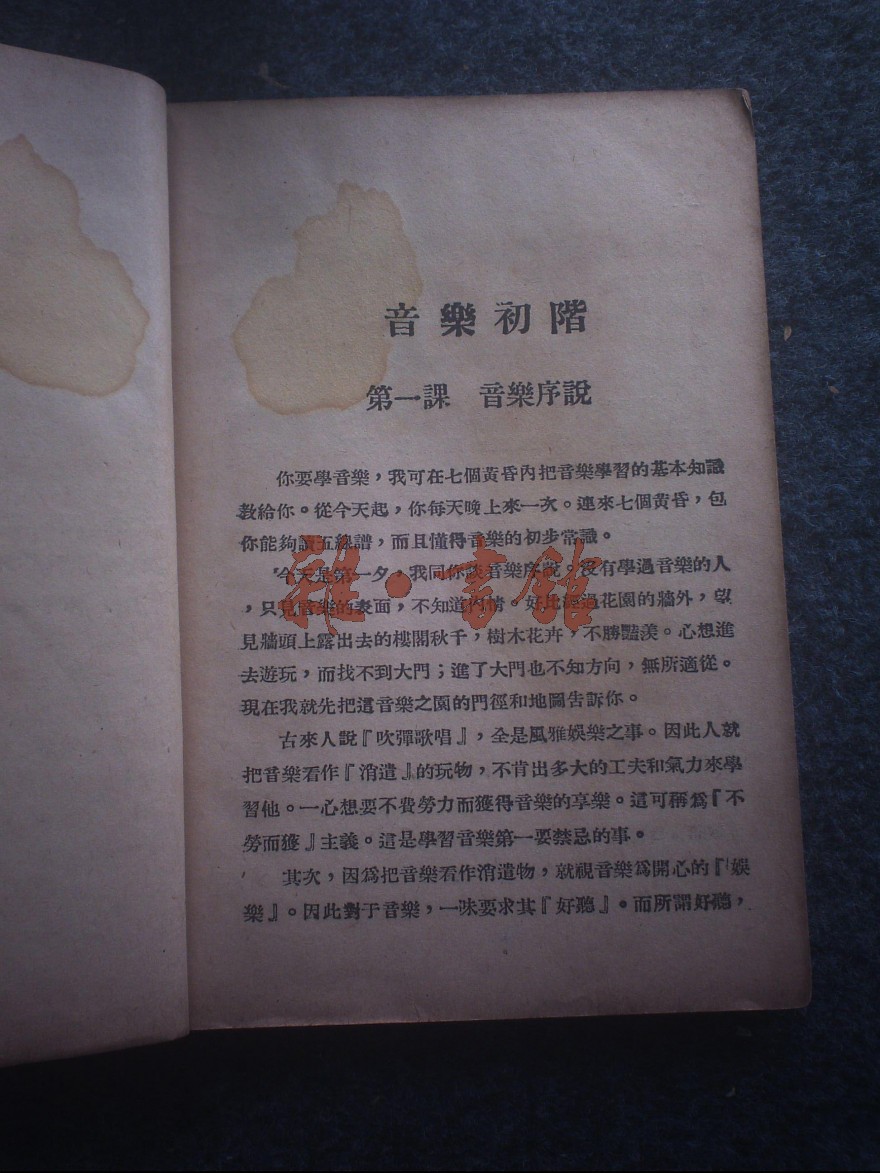 音樂初階
第一課　音樂序說
你要學音樂，我可在七個黃昏內把音樂學習的基本知識
教給你。從今天起，你每天晚上來一次。連來七個黃昏，包
你能夠讀五線譜，而且懂得音樂的初步常識。
今天是第一夕，我同你談音樂序說。沒有學過音樂的人
，只見音樂的表面，不知道內情。好比經過花園的牆外，望
見牆頭上露出去的樓閣秋千，樹木花卉，不勝豔羨。心想進
去遊玩，而找不到大門；進了大門也不知方向，無所適從。
現在我就先把這音樂之園的門徑和地圖告訴你。
古來人說『吹彈歌唱』，全是風雅娛樂之事。因此人就
把音樂看作『消遣』的玩物，不肯出多大的工夫和氣力來學
習他。一心想要不費勞力而獲得音樂的享樂。這可稱爲『不
勞而獲』主義。這是學習音樂第一要禁忌的事。
其次，因爲把音樂看作消遣物，就視音樂爲開心的『娛
樂』。因此對于音樂，一味要求其『好聽』。而所謂好聽，
雜·書館